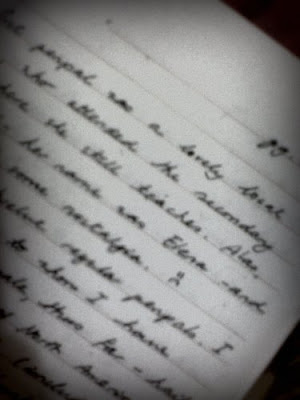 pg.
penpal was a lovely local
who attended the secondary
she still teaches. Also,
her name was Elena and
some nostalgia.
regular penpals. I
to whom I have
thus far -
North America